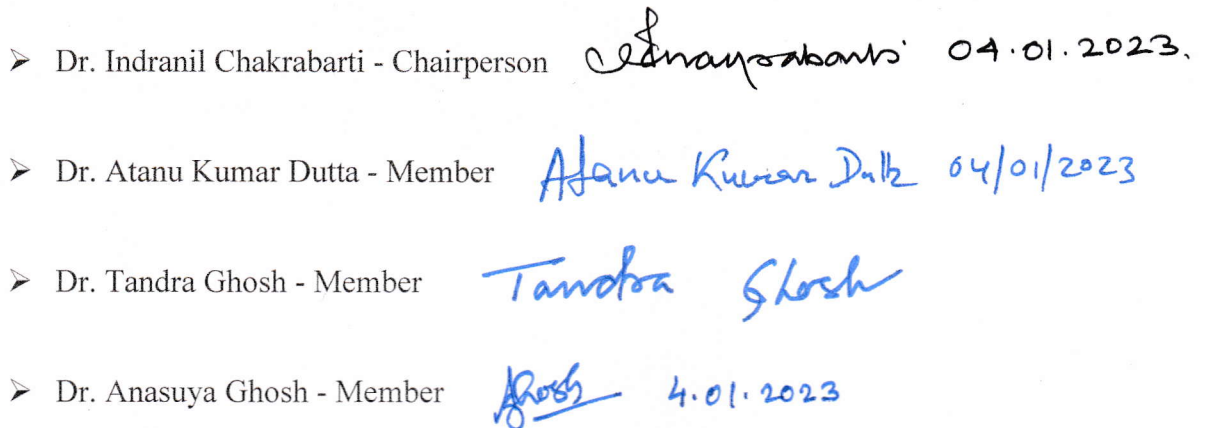 ➢ Dr. Indranil Chakrabarti - Chairperson 04.01.2023.
➢ Dr. Atanu Kumar Dutta - Member Atanu Kumar Dutta 04/01/2023
➢ Dr. Tandra Ghosh - Member Tandra Ghosh
➢ Dr. Anasuya Ghosh - Member AGhosh 4.01.2023